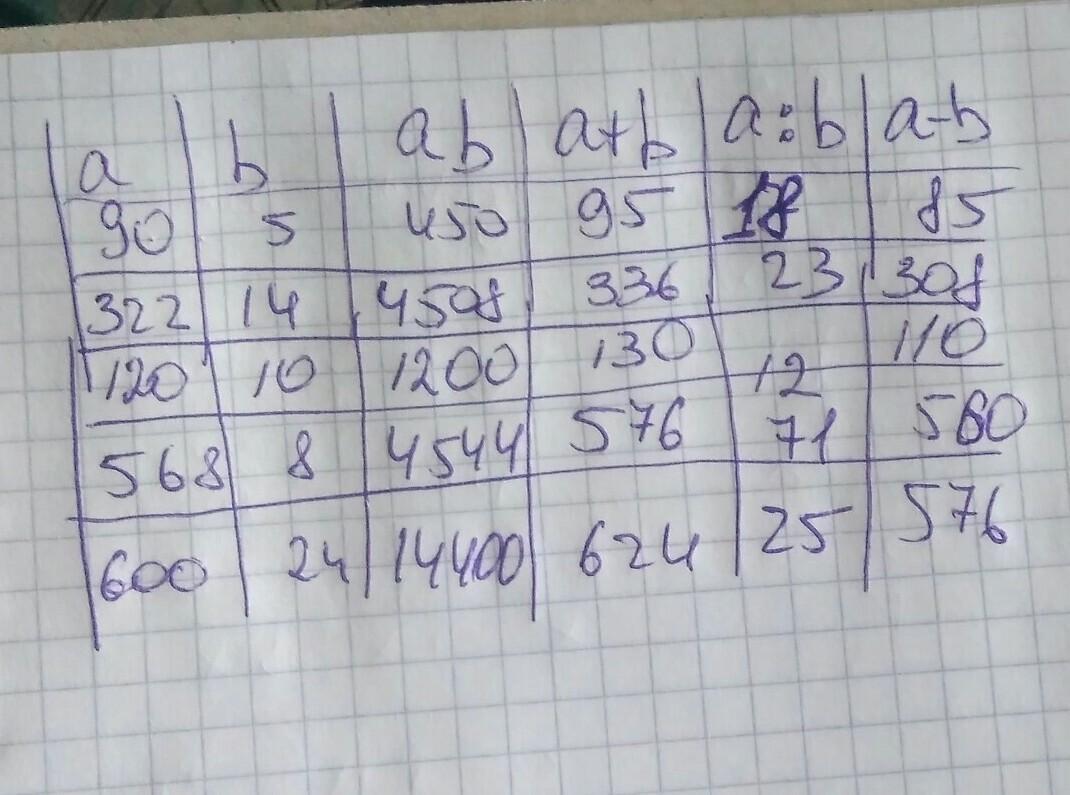 a b ab a+b a:b a-b
90 5 450 95 18 85
322 14 4508 336 23 308
120 10 1200 130 12 110
568 8 4544 576 71 560
600 24 14400 624 25 576